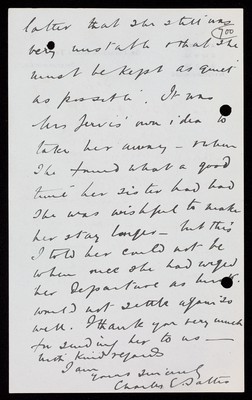 latter that she still was
700
very unstable & that she
must be kept as quiet
as possible. It was
Mrs Jervis' own idea to
take her away — & when
she found what a good
time her sister had had
she was wishful to make
her stay longer — but this
I told her could not be
when once she had urged
her departure as
would not settle again so
well. I thank you very much
for sending her to us —
With kind regards
I am
Yours sincerely
Charles C.